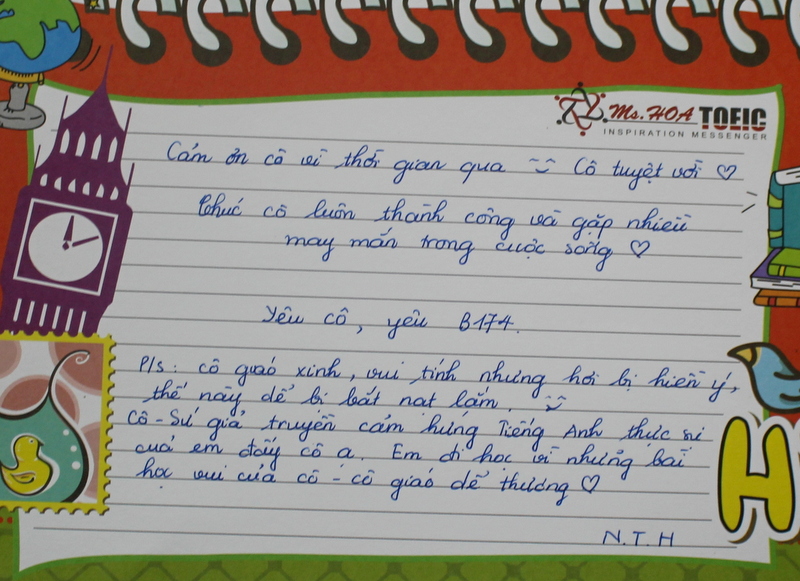 Ms. HOA TOEIC
INSPIRATION MESSENGER
Cảm ơn cô vì thời gian qua Cô tuyệt vời ♡
Chúc cô luôn thành công và gặp nhiều
may mắn trong cuộc sống ♡
Yêu cô, yêu B174.
P/s: cô giáo xinh, vui tính nhưng hơi bị hiền ý,
thế này dễ bị bắt nạt lắm.
Cô - Sứ giả truyền cảm hứng Tiếng Anh thực sự
của em đấy cô ạ. Em đi học vì những bài
học vui của cô - cô giáo dễ thương ♡
N.T.H
H